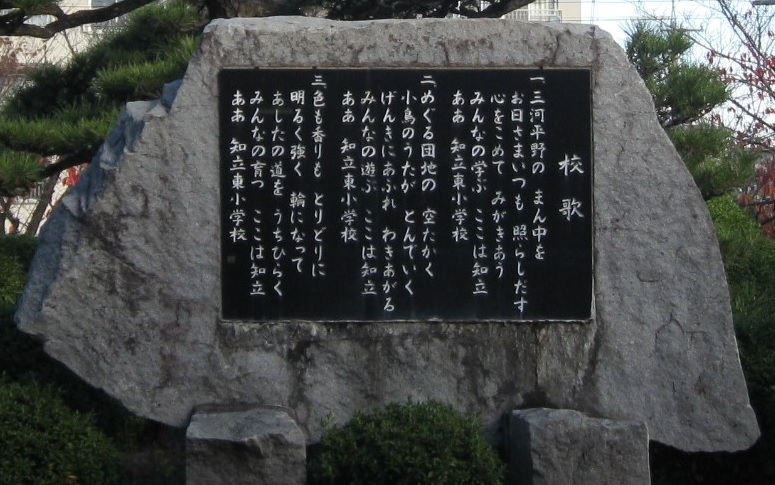 校歌
一 三河平野の まん中を
お日さまいつも 照らしだす
心をこめて みがきあう
みんなの学ぶ ここは知立
ああ 知立東小学校
二 めぐる団地の 空たかく
小鳥のうたが とんでいく
げんきにあふれ わきあがる
みんなの遊ぶ ここは知立
ああ 知立東小学校
三 色も香りも とりどりに
明るく強く 輪になって
あしたの道を うちひらく
みんなの育つ ここは知立
ああ 知立東小学校